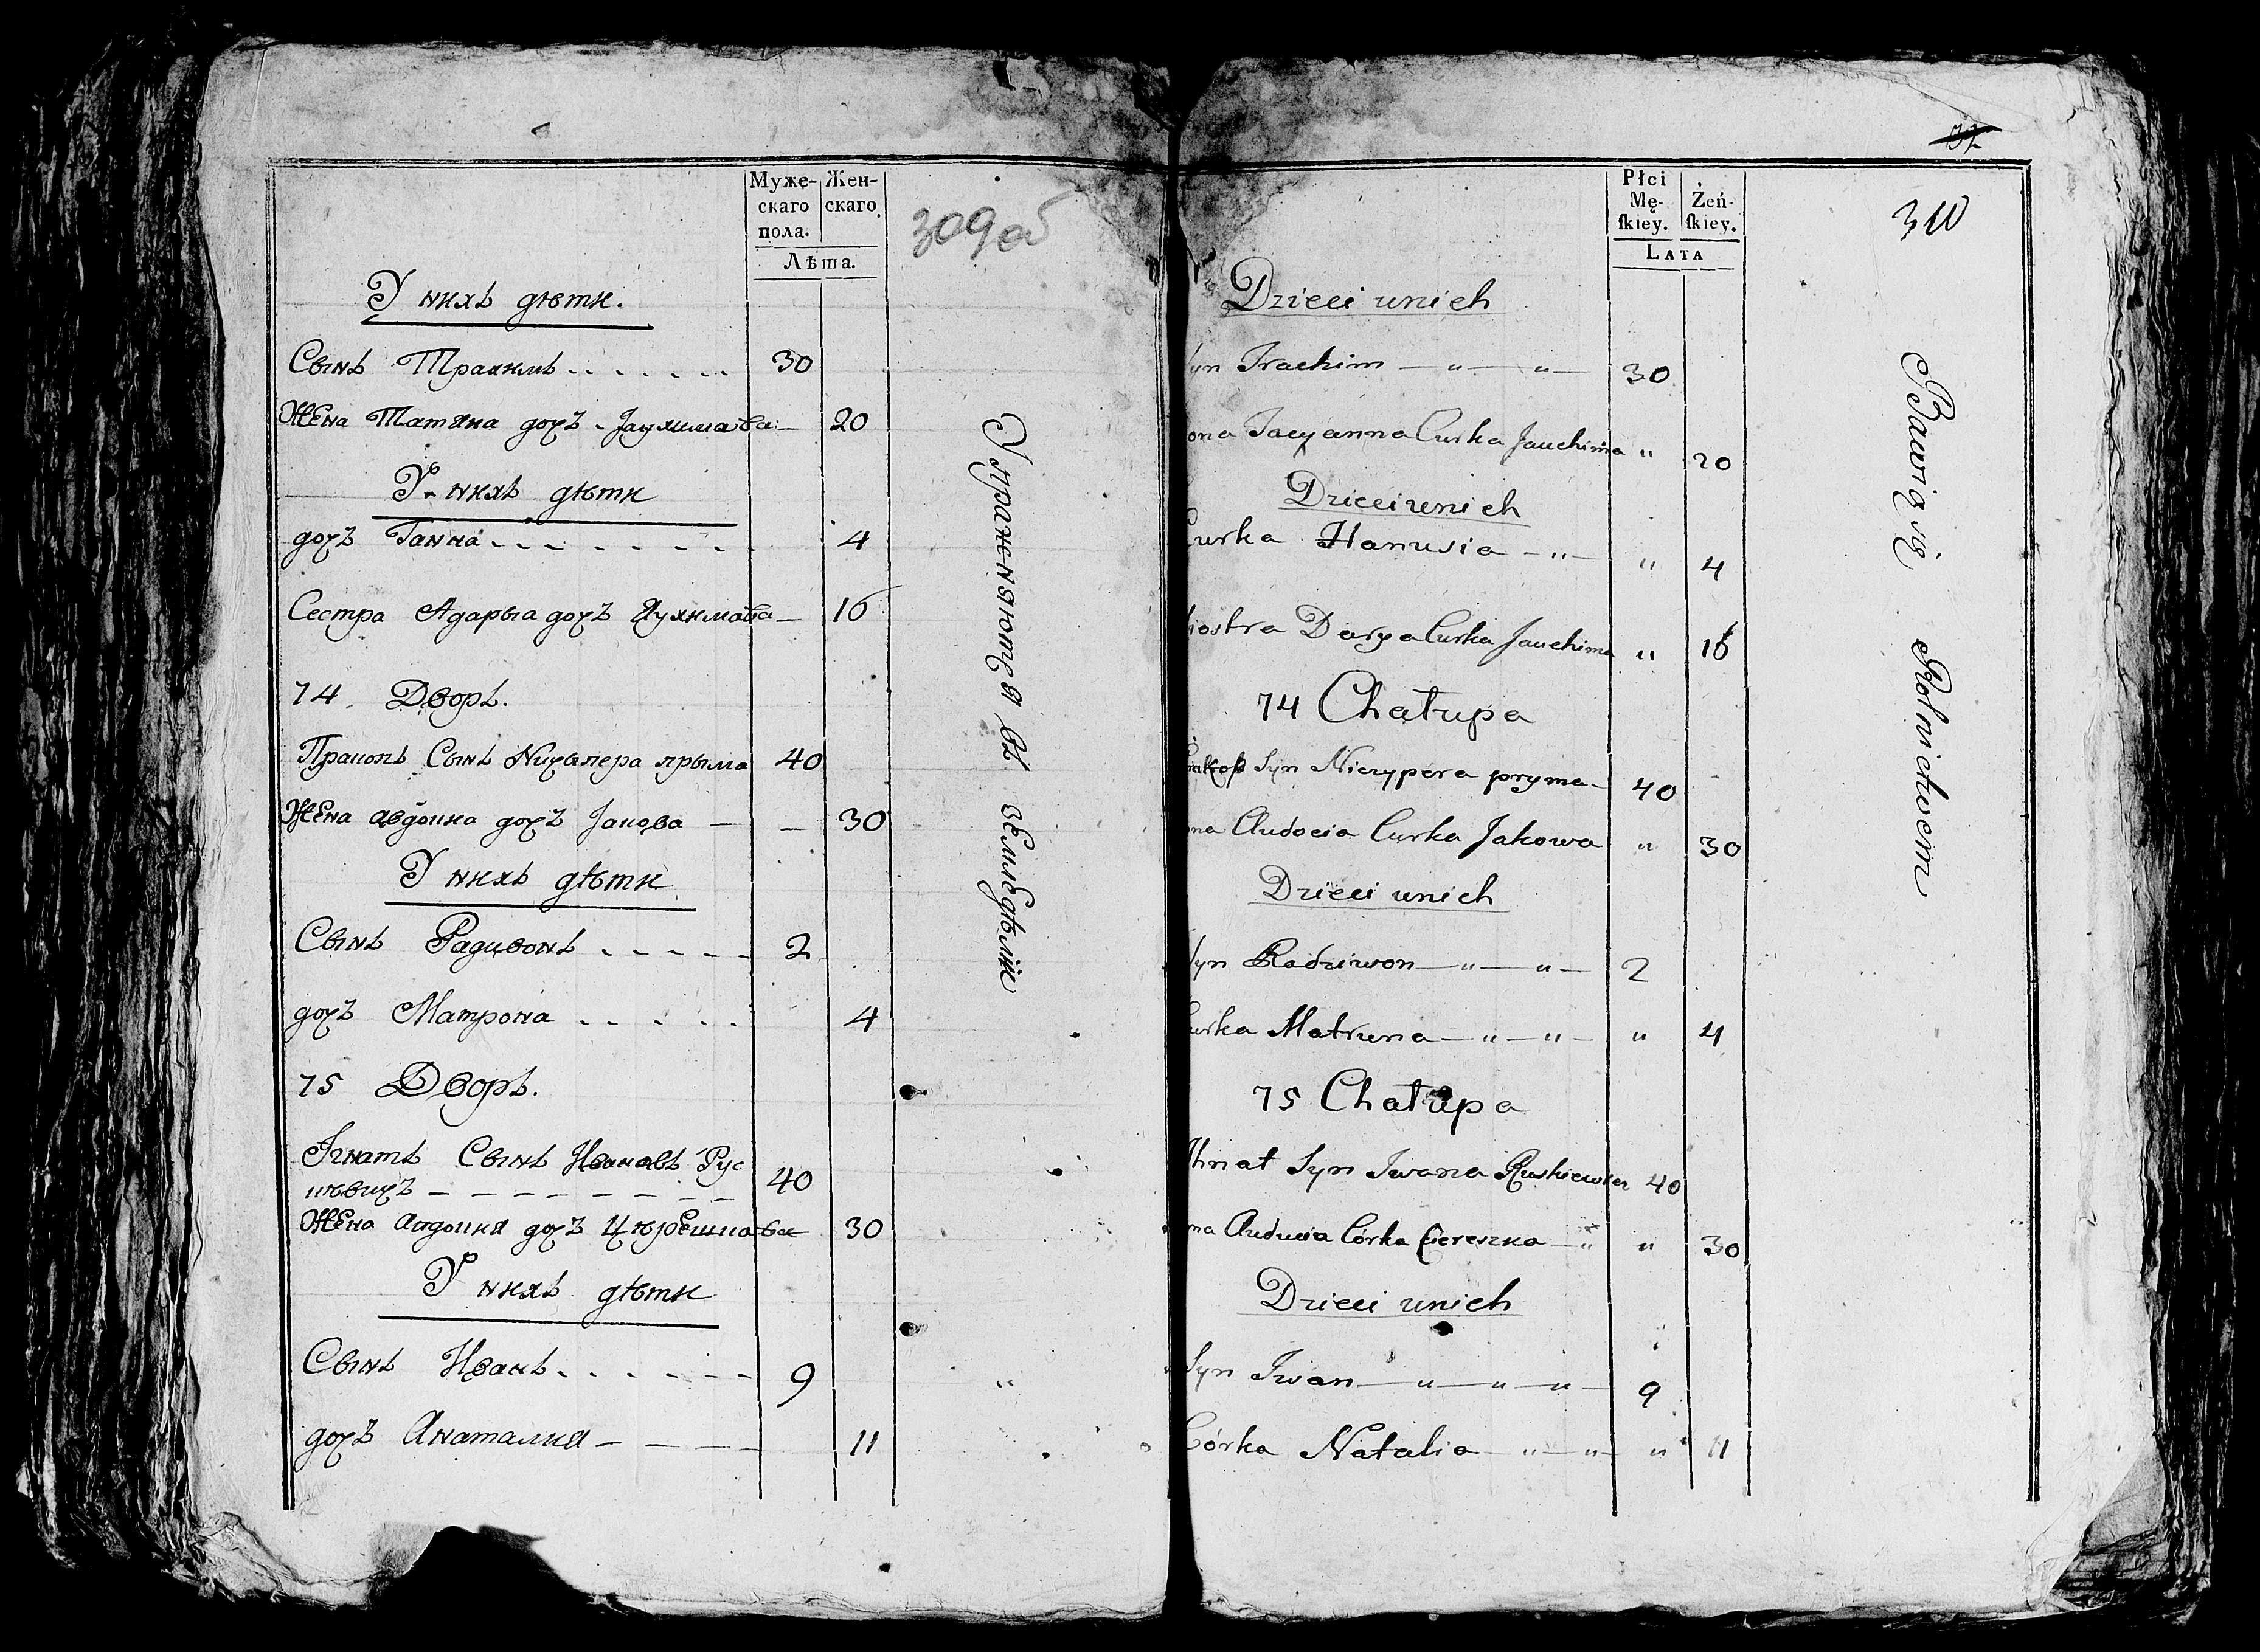 Муже-
скаго
пола.
Жен-
скаго.
Лѣта.
309об
У нихъ дѣти.
Сынъ Трахимъ 30
Жена Татяна дочъ Jаухимава 20
У нихъ дѣти
дочъ Ганна 4
Сестра Адарыа дочъ Яухимава 16
74 Дворъ.
Пракопъ Сынъ Ничыпера прыма 40
Жена авдокиа дочъ Jакова 30
У нихъ дѣти
Сынъ Радивонъ 2
дочъ Матрона 4
75 Дворъ.
Iгнатъ Сынъ Ивановъ Рус
кѣвичъ 40
Жена Авдокиа дочъ Цѣрешкова 30
У нихъ дѣти
Сынъ Иванъ 9
дочъ Анаталиа 11
Упражняютца въ земледѣліи
32
Płci
Mę-
ſkiey.
Żeń-
ſkiey.
LATA
310
Dzieci unich
Syn Trachim — " — " — 30
ona Tacyanna Curka Jauchima " 20
Dzieci unich
Curka Hanusia — " — " 4
iostra Darya Curka Jauchima " 16
74 Chałupa
Prakop Syn Niczypera pryma — 40
ona Audocia Curka Jakowa " 30
Dzieci unich
Syn Radziwon — " — " — 2
Curka Matruna — " — " — " 4
75 Chałupa
Ihnat Syn Iwana Ruskiewicz 40
ona Auducia Córka Ciereszka — " " 30
Dzieci unich
Syn Iwan — " — " — " — 9
Córka Natalia — " — " — " 11
Bawią się Rolnictwem